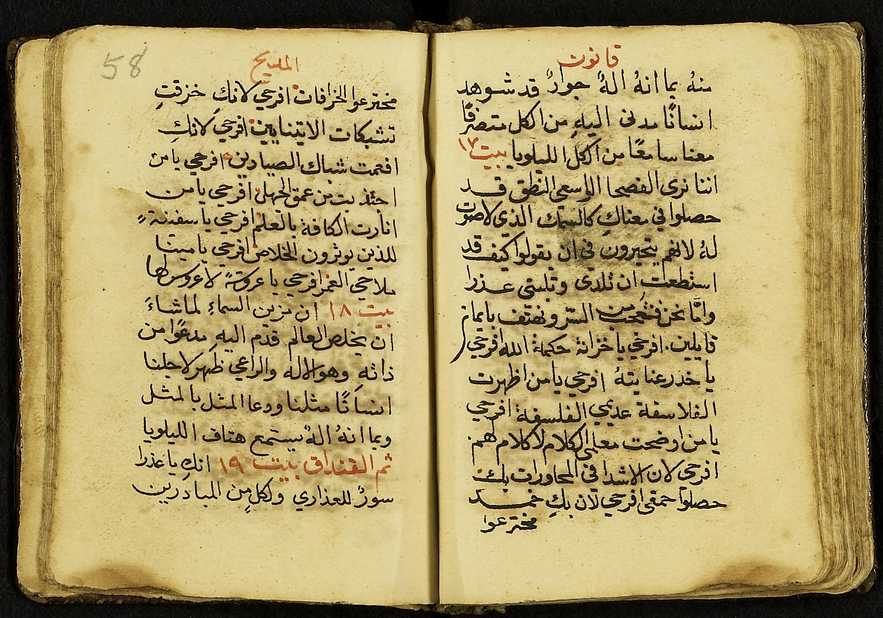 قانون
منهُ بما انهُ الهٌ جوادٌ قد شوهد
انسانًا مدنى اليهِ من الكل متصرفًا
معنا سامعًا من الكل الليلويا بيت ١٧
اننا نرى الفصحا الاوسعى النطق قد
حصلوا في معناكِ كالسمك الذي لاصوت
لهُ لانهم يتحيرون في ان يقولوا كيف قد
استطعت ان تلدي وتلبثى عذرا
وامَّا نحن فنتعجب من السر ونهتف بايمان
قايلين. افرحي يا خزانة حكمة الله افرحي
يا خدر عنايتهُ افرحي يا من اظهرت
الفلاسفة عديمي الفلسفة افرحي
يا من اوضحت معلمى الكلام لاكلام لهم
افرحي لان الاشدا في المحاورات بكِ
حصلوا حمقى افرحي لان بكِ خمد
مخترعوا
58
المديح
مخترعوا الخرافات افرحي لانكِ خزقتِ
تشبكات الاثينايين افرحي لانكِ
افعمت شباك الصيادين افرحي يا من
اجتذبت من عمق الجهل افرحي يا من
انارت الكافة بالعلم افرحي يا سفينةً
للذين يوثرون الخلاص افرحي يا مينا
ملاحي العمر افرحي يا عروسةً لا عروس لها
بيت ١٨ ان مزين السماءِ لما شاءَ
ان يخلص العالم قدم اليهِ مدعوًا من
ذاتهِ وهو الاله والراعي ظهر لاجلنا
انسانًا مثلنا ودعا المثل بالمثل
وبما انهُ الهٌ يستمع هتاف الليلويا
ثم القنداق بيت ١٩ انكِ يا عذرا
سورٌ للعذاري ولكل من المبادرين